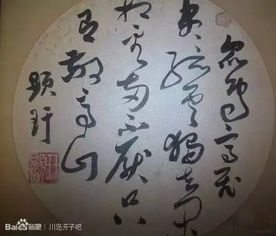 众鸟高飛
尽孤雲獨去閒
相看两不厌只
有敬亭山
顕玗
Bai 贴吧 | 川岛芳子吧